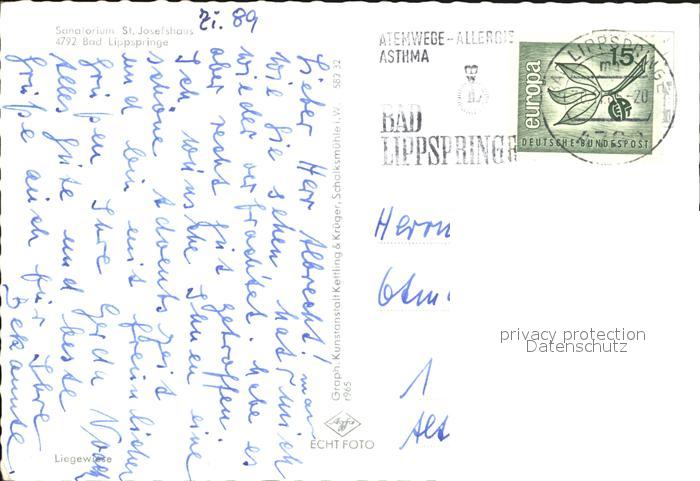 Sanatorium St. Josefshaus
4792 Bad Lippspringe
Zi. 89
Lieber Herr Albrecht!
wie Sie sehen hat man mich
wieder verfrachtet. habe es
aber recht gut getroffen.
Ich wünsche Ihnen eine
schöne Adventszeit
und bin mit freundlichen
Grüßen Ihre Gerda
Alles Gute und beste
Grüße auch für Ihre
Bekannte.
Liegewiese
583 32
Graph. Kunstanstalt Kettling & Krüger, Schalksmühle i. W.
1965
Agfa
ECHT FOTO
ATEMWEGE-ALLERGIE
ASTHMA
BAD
LIPPSPRINGE
BAD LIPPSPRINGE
-20
europa
15
CEPT
DEUTSCHE BUNDESPOST
Herrn
1
privacy protection
Datenschutz